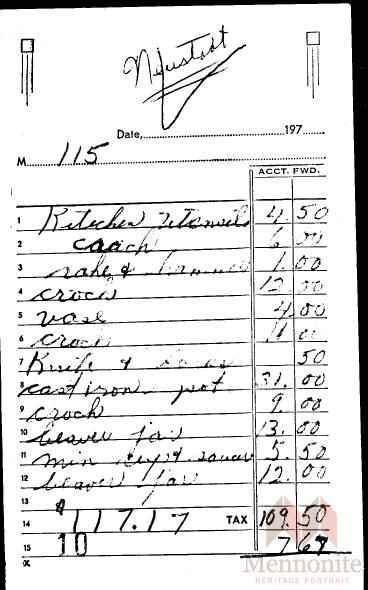 Neustadt
Date, 197
M 115
ACCT. FWD.
1 Kitchen Utensils 4. 50
2 coach 6 00
3 rake & hammer 1. 00
4 crock 12 00
5 vase 4.00
6 crock 11 00
7 Knife & 50
8 cast iron pot 31. 00
9 crock 9. 00
10 beaver jar 13. 00
11 min cup & saucer 5. 50
12 beaver jar 12. 00
13
14 $117.17 TAX 109.50
15 10 7 67
Mennonite
HERITAGE PORTRAIT